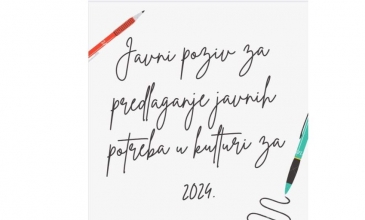 Javni poziv za
predlaganje javnih
potreba u kulturi za
2024.